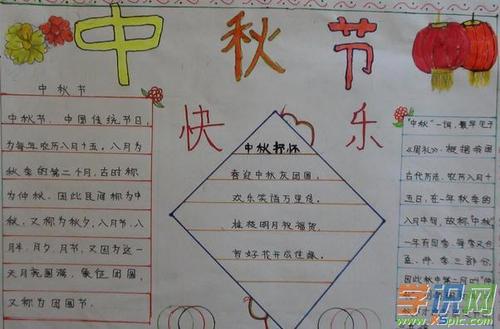 中秋节
快乐
中秋节
中秋节、中国传统节日,
为每年农历八月十五。八月为
秋季的第二个月,古时称
为仲秋,因此民间称为中
秋、又称为秋夕、八月节、八
月半、月夕、月节、又因为这一
天月亮圆满、象征团圆,
又称为团圆节。
中秋抒怀
喜迎中秋友团圆,
欢乐笑语万里传。
桂枝明月祝福贺,
好花开
"中秋"一词,最早见于
《周礼》,根据我国
古代历法,农历八月十
五日,在一年秋季的
八月中旬,故称"中秋"
一年有四季,每季又分
孟、仲、季三部分,
因此秋中第二月叫"仲
学识网
www.XSpic.com